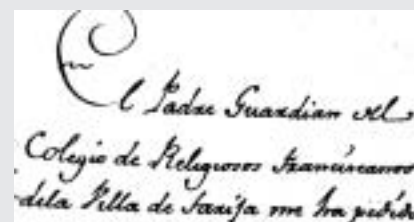 El Padre Guardian del
Colegio de Religiosos Franciscanos
dela Villa de Tarija me ha pedido